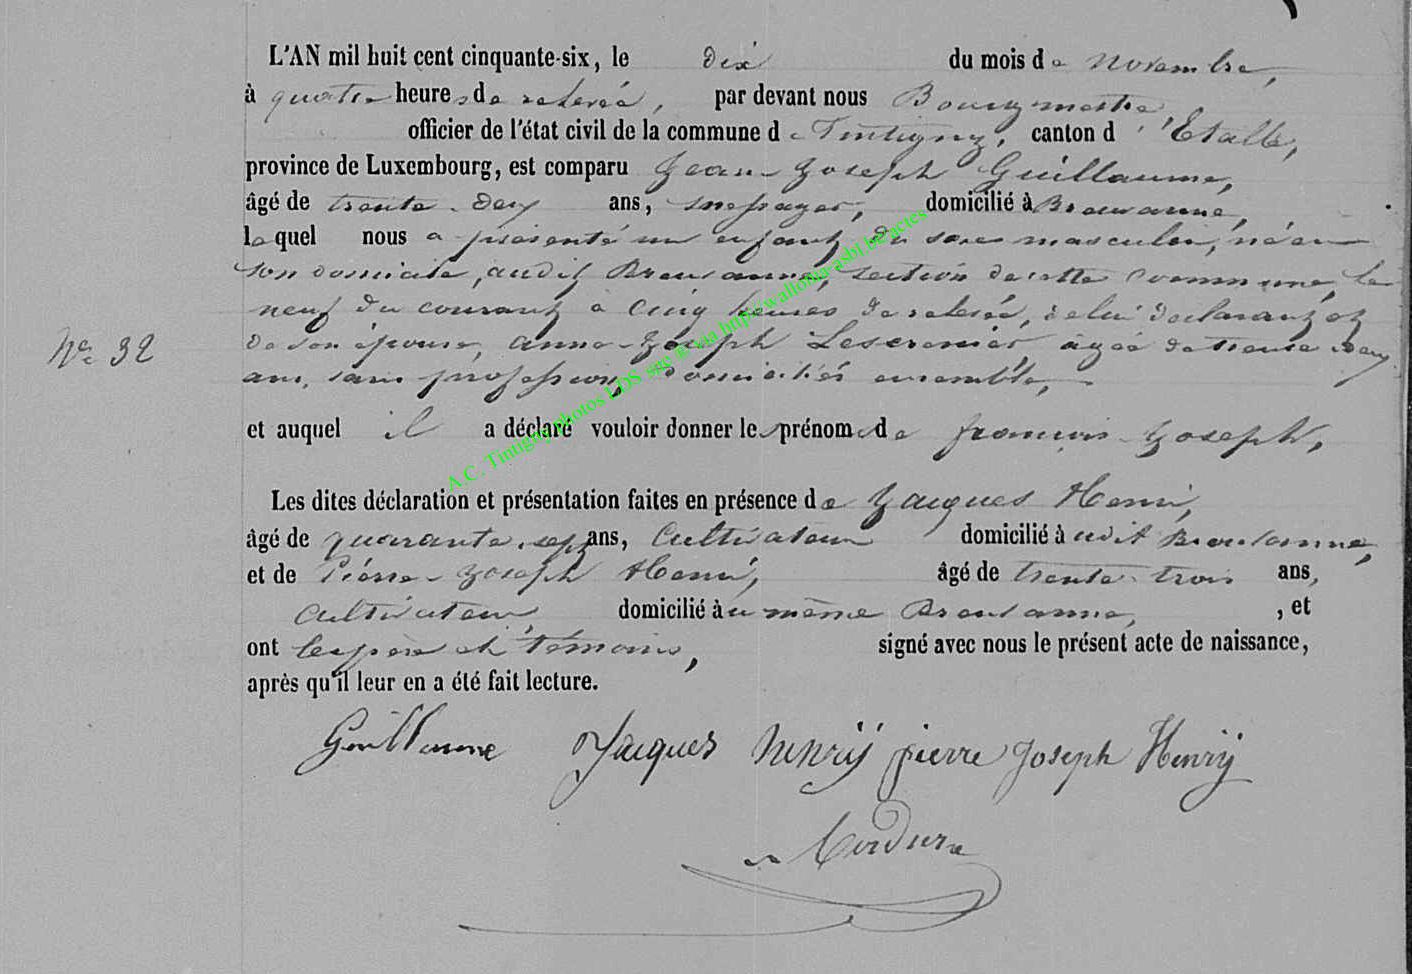 L'AN mil huit cent cinquante-six, le dix du mois de novembre,
à quatre heures de relevée, par devant nous Bourgmestre
officier de l'état civil de la commune de Tintigny, canton d'Etalle,
province de Luxembourg, est comparu Jean-Joseph Guillaume,
âgé de trente-deux ans, domicilié à Breuvanne,
lequel nous a présenté un enfant du sexe masculin, né en
son domicile, audit Breuvanne, section de cette commune, le
neuf du courant à cinq heures de relevée, de lui déclarant et
N° 32
de son épouse, Anne-Joseph Lescrenier âgée de trente deux
ans, sans profession, domiciliés ensemble,
et auquel il a déclaré vouloir donner les prénoms de françois-Joseph,
Les dites déclaration et présentation faites en présence de Jacques Henri,
âgé de quarante-sept ans, Cultivateur domicilié à udit Breuvanne,
et de Pierre-Joseph Henri, âgé de trente-trois ans,
Cultivateur, domicilié àu même Breuvanne, , et
ont les père et témoins, signé avec nous le présent acte de naissance,
après qu'il leur en a été fait lecture.
Guillaume Jacques henrÿ pierre Joseph Henrÿ
A.C. Tintigny photos LDS site © via http://wallonia-asbl.be/actes